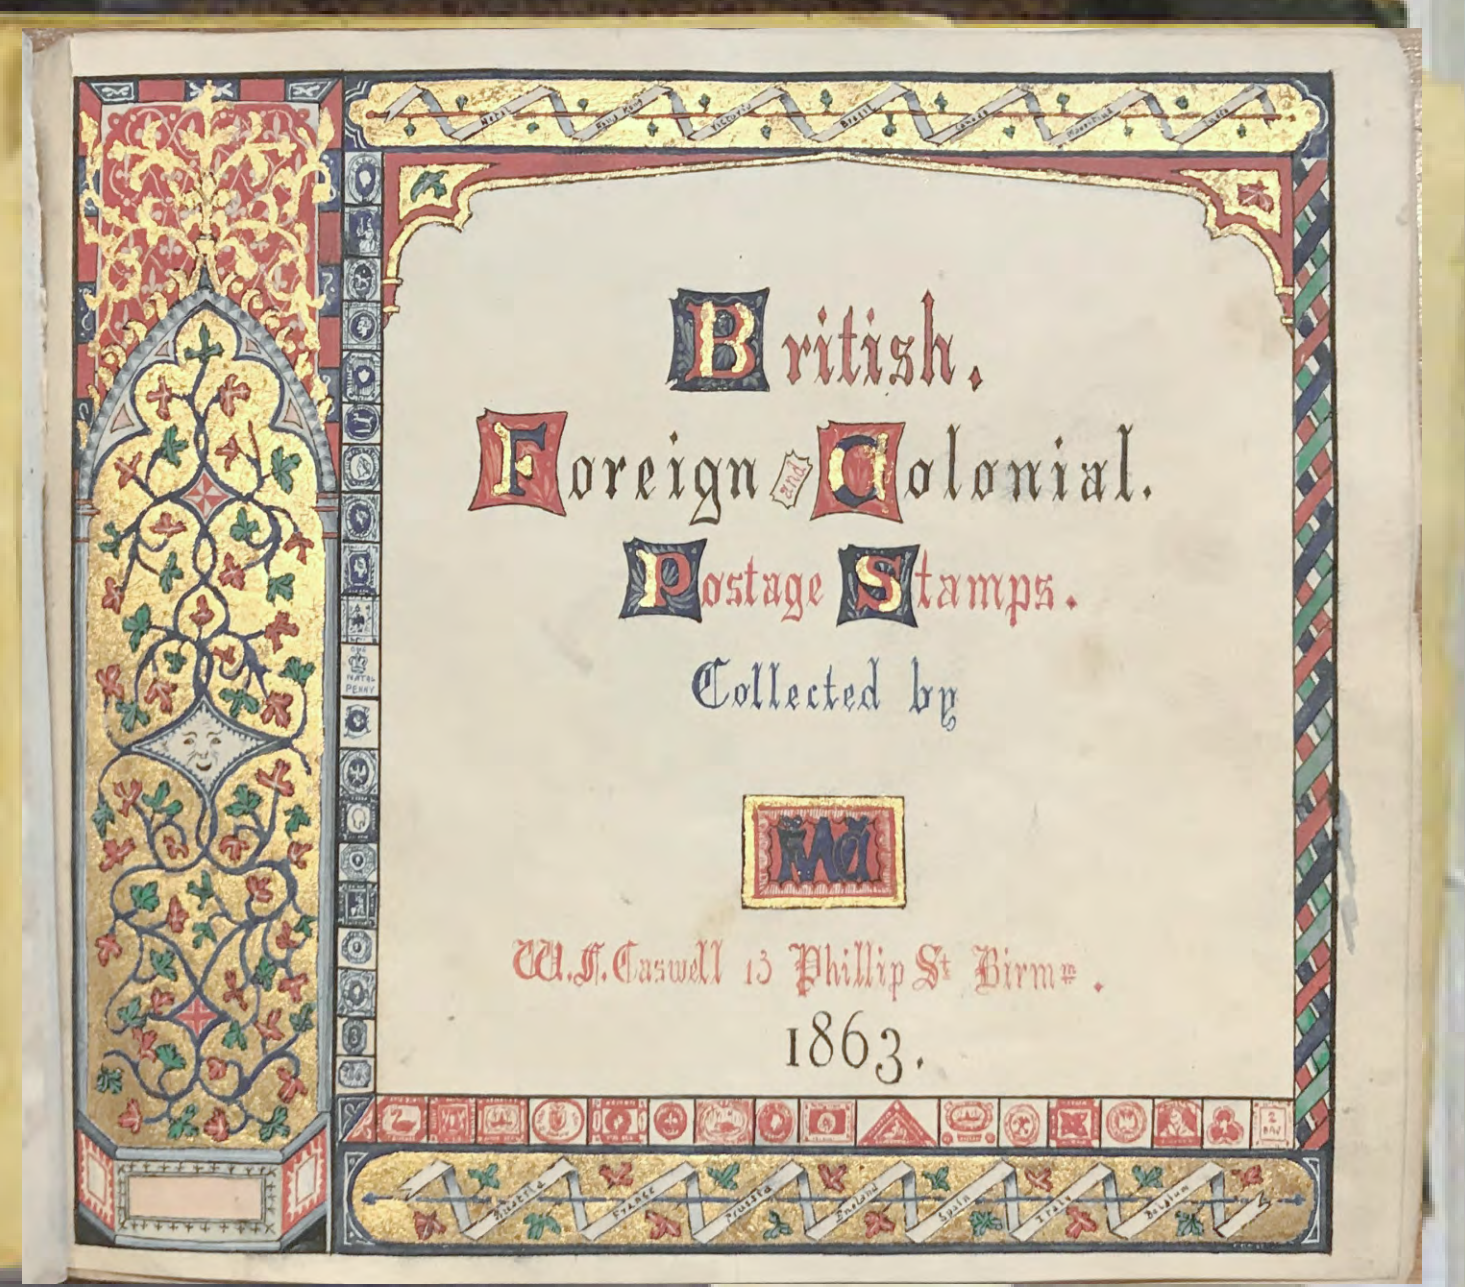 Natal Hong Kong Victoria Brazil Canada Mauritius India
British.
Foreign and Colonial.
Postage Stamps.
Collected by
W.F. Caswell 13 Phillip St Birmm.
1863.
ONE
NATAL
PENNY
Austria France Prussia England Spain Italy Belgium